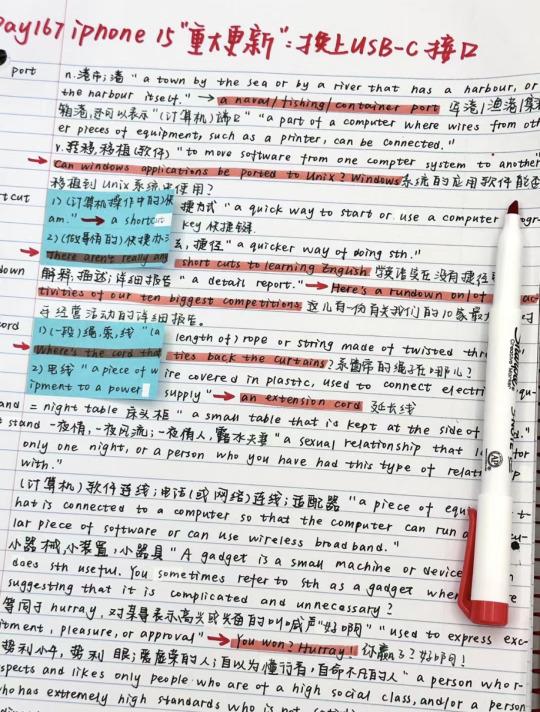 Day167 iphone 15 "重大更新": 换上USB-C 接口
port n.港市;港 "a town by the sea or by a river that has a harbour, or
the harbour itself." → a naval/fishing/container port 军港/渔港/集
输港,还可以表示"(计算机)端口" "a part of a computer where wires from oth
er pieces of equipment, such as a printer, can be connected."
v.移植(软件) "to move software from one compter system to another"
→ Can windows applications be ported to Unix? Windows系统的应用软件能否
移植到 Unix 系统中使用?
1)(计算机操作中的)快 捷方式 "a quick way to start or use a computer progr-
am." → a shortcut key 快捷键
2)(做事情的)快捷办法, 捷径 "a quicker way of doing sth."
there aren't really any short cuts to learning English 学英语实在没有捷径
down 解释;描述;详细报告 "a detail report." → Here's a rundown on/of
tivities of our ten biggest competitions. 这儿有一份有关我们的10家最大
手经营活动的详细报告。
cord 1)(一段)绳,索,线 "(a length of) rope or string made of twisted thr
Where's the cord that ties back the curtains? 系窗帘的绳子在哪儿?
2) 电线 "a piece of wire covered in plastic, used to connect electri qu-
ipment to a power supply" → an extension cord 延长线
and = night table 床头柜 "a small table that is kept at the side of
stand 一夜情,一夜风流;一夜情人,露水夫妻 "a sexual relationship that for
only one night, or a person who you have had this type of relati p
with."
(计算机)软件连线;电话(或网络)连线;适配器 "a piece of equ t-
hat is connected to a computer so that the computer can run a
lar piece of software or can use wireless broadband."
小器械,小装置,小器具 "A gadget is a small machine or device
does sth useful. You sometimes refer to sth as a gadget when re
suggesting that it is complicated and unnecessary?
等同于 hurray, 对某事表示高兴或满意的叫喊声 "好啊" "used to express exc-
itment, pleasure, or approval" → You won? Hurray! 你赢了?好啊!
势利小人,势利眼;爱虚荣的人;自以为懂行者,自命不凡的人 "a person who r-
spects and likes only people who are of a high social class, and/or a person
who has extremely high standards who is not